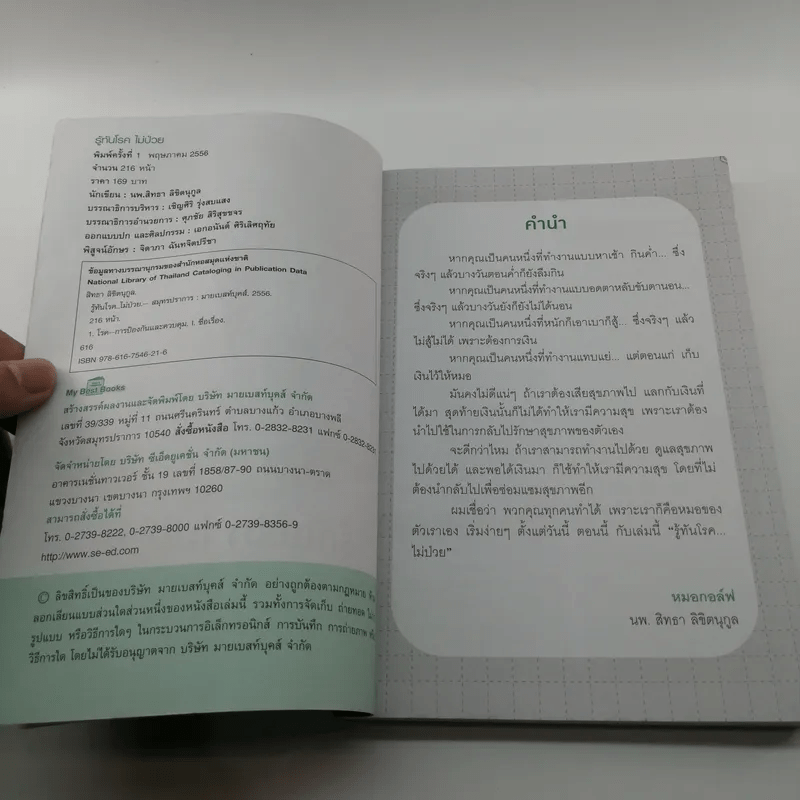 รู้ทันโรค ไม่ป่วย
พิมพ์ครั้งที่ 1 พฤษภาคม 2556
จำนวน 216 หน้า
ราคา 169 บาท
นักเขียน : นพ.สิทธา ลิขิตนุกูล
บรรณาธิการบริหาร : เชิญศิริ รุ่งสบแสง
บรรณาธิการอำนวยการ : ศุภชัย สิริสุขชจร
ออกแบบปก และศิลปกรรม : เอกอนันต์ ศิริเลิศฤทัย
พิสูจน์อักษร : จิดาภา ฉันทจิตปรีชา
ข้อมูลทางบรรณานุกรมของสำนักหอสมุดแห่งชาติ
National Library of Thailand Cataloging in Publication Data
สิทธา ลิขิตนุกูล.
รู้ทันโรค..ไม่ป่วย.-- สมุทรปราการ : มายเบสท์บุคส์, 2556.
216 หน้า.
1. โรค--การป้องกันและควบคุม. I. ชื่อเรื่อง.
616
ISBN 978-616-7546-21-6
My Best Books
สร้างสรรค์ผลงานและจัดพิมพ์โดย บริษัท มายเบสท์บุคส์ จำกัด
เลขที่ 39/339 หมู่ที่ 11 ถนนศรีนครินทร์ ตำบลบางแก้ว อำเภอบางพลี
จังหวัดสมุทรปราการ 10540 สั่งซื้อหนังสือ โทร. 0-2832-8231 แฟกซ์ 0-2832-8231
จัดจำหน่ายโดย บริษัท ซีเอ็ดยูเคชั่น จำกัด (มหาชน)
อาคารเนชั่นทาวเวอร์ ชั้น 19 เลขที่ 1858/87-90 ถนนบางนา-ตราด
แขวงบางนา เขตบางนา กรุงเทพฯ 10260
สามารถสั่งซื้อได้ที่
โทร. 0-2739-8222, 0-2739-8000 แฟกซ์ 0-2739-8356-9
http://www.se-ed.com
© ลิขสิทธิ์เป็นของบริษัท มายเบสท์บุคส์ จำกัด อย่างถูกต้องตามกฎหมาย
ลอกเลียนแบบส่วนใดส่วนหนึ่งของหนังสือเล่มนี้ รวมทั้งการจัดเก็บ ถ่ายทอด
รูปแบบ หรือวิธีการใดๆ ในกระบวนการอิเล็กทรอนิกส์ การบันทึก การถ่ายภาพ
วิธีการใด โดยไม่ได้รับอนุญาตจาก บริษัท มายเบสท์บุคส์ จำกัด
คำนำ
หากคุณเป็นคนหนึ่งที่ทำงานแบบหาเช้า กินค่ำ... ซึ่ง
จริงๆ แล้วบางวันตอนค่ำก็ยังลืมกิน
หากคุณเป็นคนหนึ่งที่ทำงานแบบอดตาหลับขับตานอน...
ซึ่งจริงๆ แล้วบางวันยังก็ยังไม่ได้นอน
หากคุณเป็นคนหนึ่งที่หนักก็เอาเบาก็สู้... ซึ่งจริงๆ แล้ว
ไม่สู้ไม่ได้ เพราะต้องการเงิน
หากคุณเป็นคนหนึ่งที่ทำงานแทบแย่... แต่ตอนแก่ เก็บ
เงินไว้ให้หมอ
มันคงไม่ดีแน่ๆ ถ้าเราต้องเสียสุขภาพไป แลกกับเงินที่
ได้มา สุดท้ายเงินนั้นก็ไม่ได้ทำให้เรามีความสุข เพราะเราต้อง
นำไปใช้ในการกลับไปรักษาสุขภาพของตัวเอง
จะดีกว่าไหม ถ้าเราสามารถทำงานไปด้วย ดูแลสุขภาพ
ไปด้วยได้ และพอได้เงินมา ก็ใช้ทำให้เรามีความสุข โดยที่ไม่
ต้องนำกลับไปเพื่อซ่อมแซมสุขภาพอีก
ผมเชื่อว่า พวกคุณทุกคนทำได้ เพราะเราก็คือหมอของ
ตัวเราเอง เริ่มง่ายๆ ตั้งแต่วันนี้ ตอนนี้ กับเล่มนี้ “รู้ทันโรค...
ไม่ป่วย”
หมอกอล์ฟ
นพ. สิทธา ลิขิตนุกูล